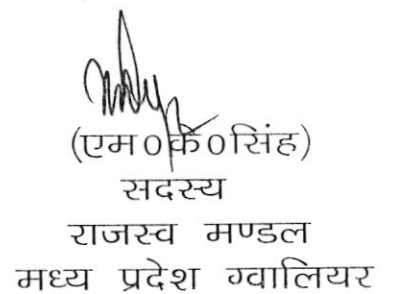 (एम0के0सिंह)
सदस्य
राजस्व मण्डल
मध्य प्रदेश ग्वालियर